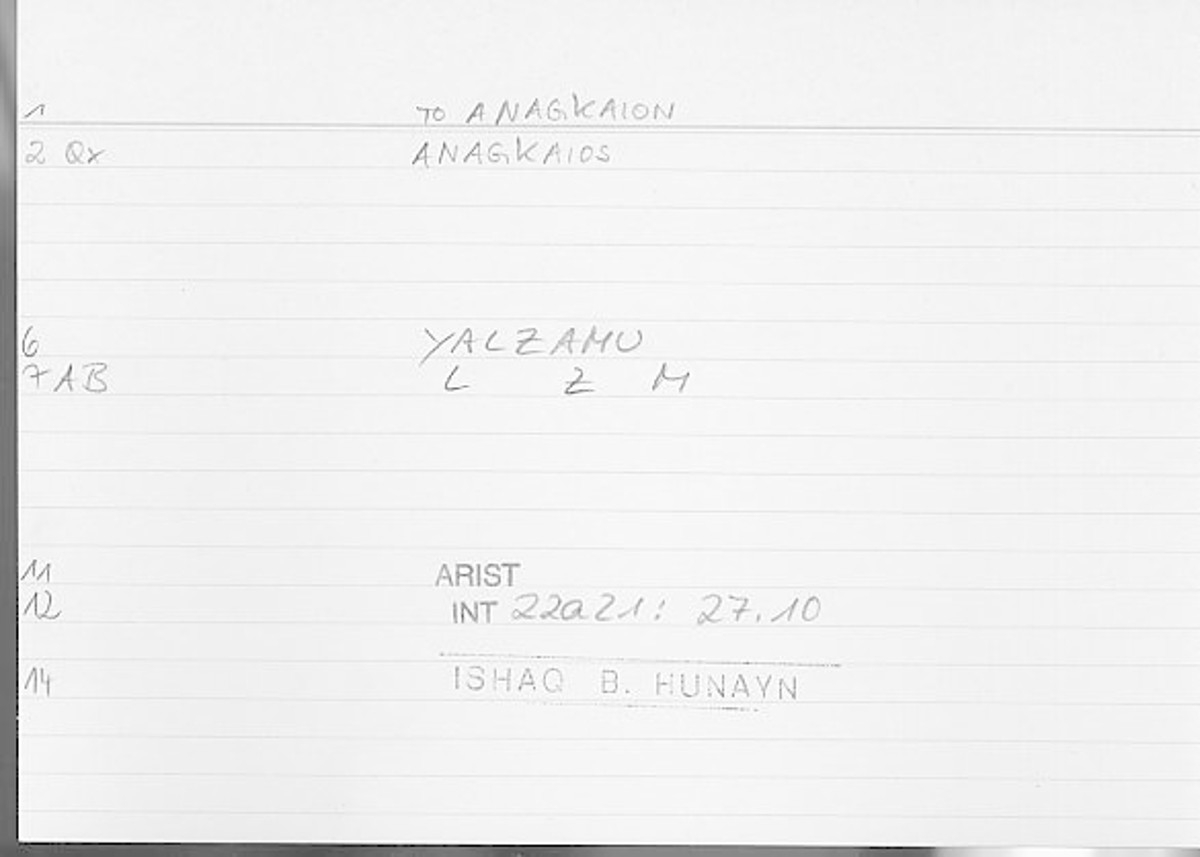 1 TO ANAGKAION
2 Qx ANAGKAIOS
6 YALZAMU
7 AB L Z M
11 ARIST
12 INT 22a21: 27.10
14 ISHAQ B. HUNAYN